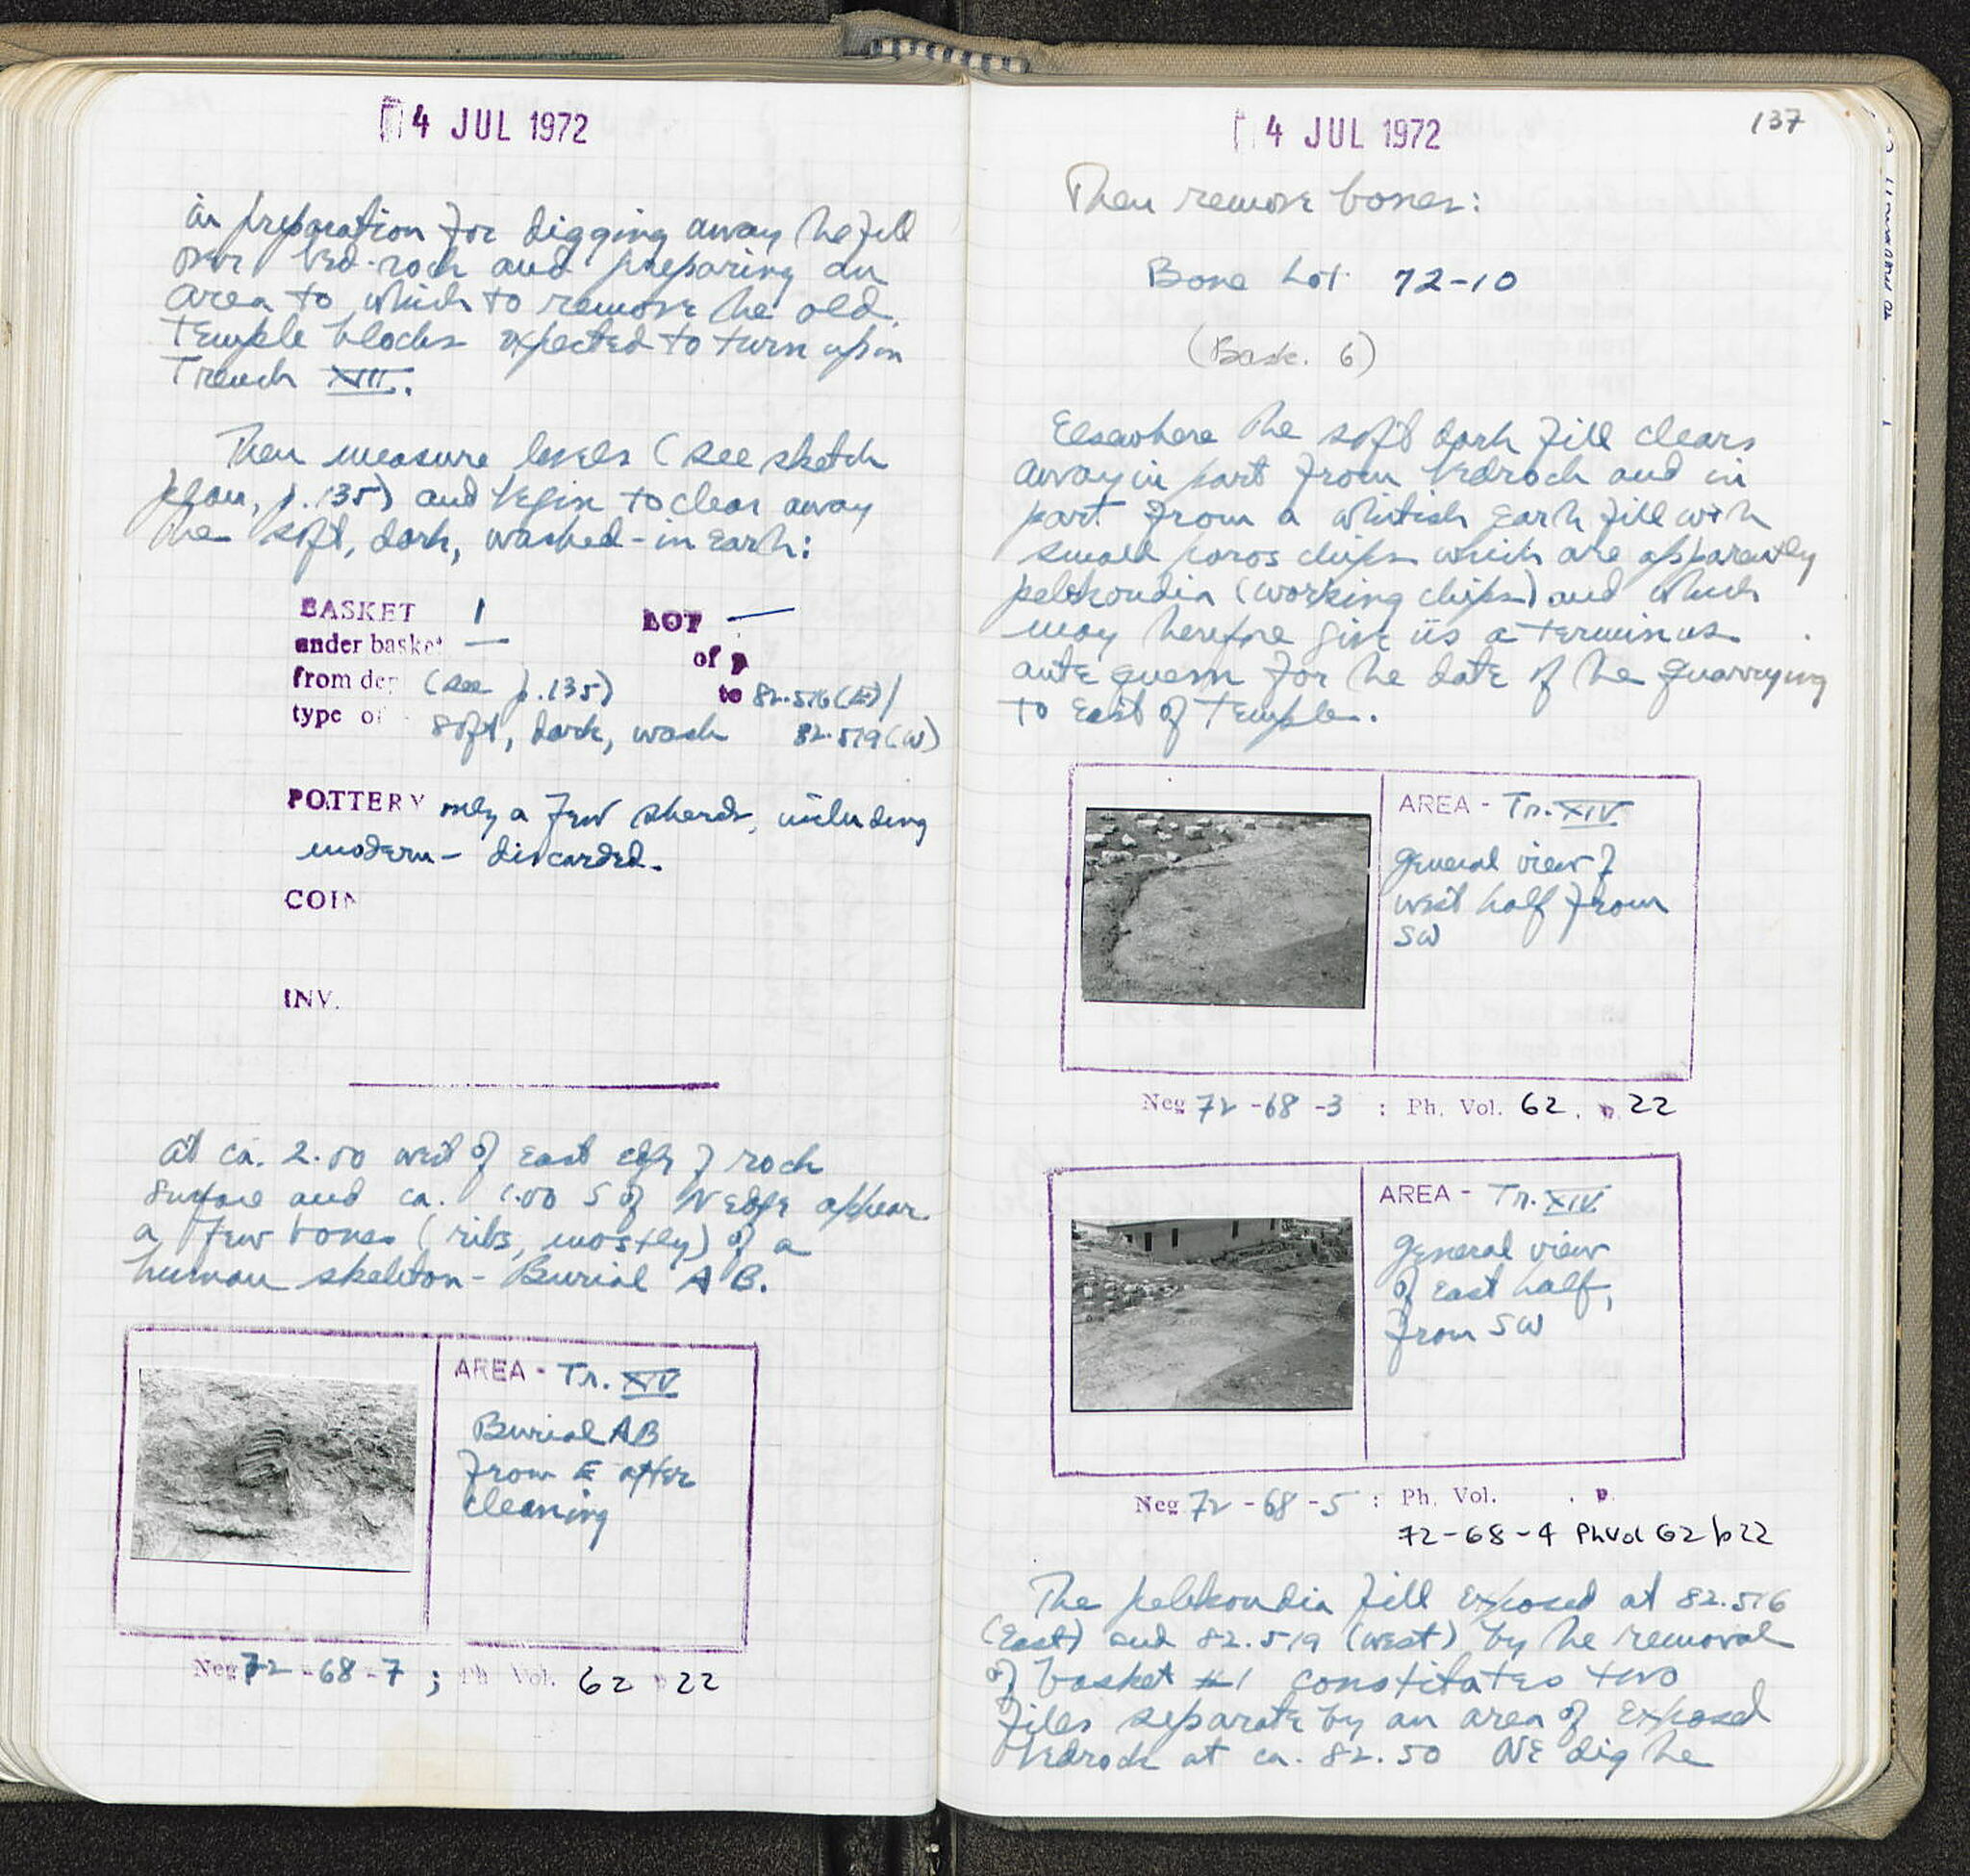 4 JUL 1972
in preparation for digging away the fill
over bed-rock and preparing an
area to which to remove the old
Temple blocks expected to turn up in
Trench XIII.
Then measure levels (see sketch
plan, p. 135) and begin to clear away
the soft, dark, washed-in earth:
BASKET 1 LOT —
under basket — of p
from dep (see p. 135) to 82.516 (E)/
type of soft, dark, wash 82.519 (W)
POTTERY only a few sherds, including
modern - discarded.
COIN
INV.
At ca. 2.00 west of east edge of rock
surface and ca. 1.00 S of N edge appear
a few bones (ribs, mostly) of a
human skeleton - Burial AB.
AREA - Tr. XIV
Burial AB
from E after
cleaning
Neg 72-68-7 ; Ph Vol. 62 p 22
4 JUL 1972
137
Then remove bones:
Bone Lot 72-10
(Bask. 6)
Elsewhere the soft dark fill clears
away in part from bedrock and in
part from a whitish earth fill with
small poros chips which are apparently
pelekoudia (working chips) and which
may therefore give us a terminus
ante quem for the date of the quarrying
to East of Temple.
AREA - Tr. XIV
general view of
west half from
SW
Neg 72-68-3 : Ph. Vol. 62, p. 22
AREA - Tr. XIV
general view
of east half,
from SW
Neg 72-68-5 : Ph. Vol. . p.
72-68-4 PhVol 62 p 22
The pelekoudia fill exposed at 82.516
(East) and 82.519 (West) by the removal
of basket #1 constitutes two
fills separate by an area of exposed
bedrock at ca. 82.50 We dig the